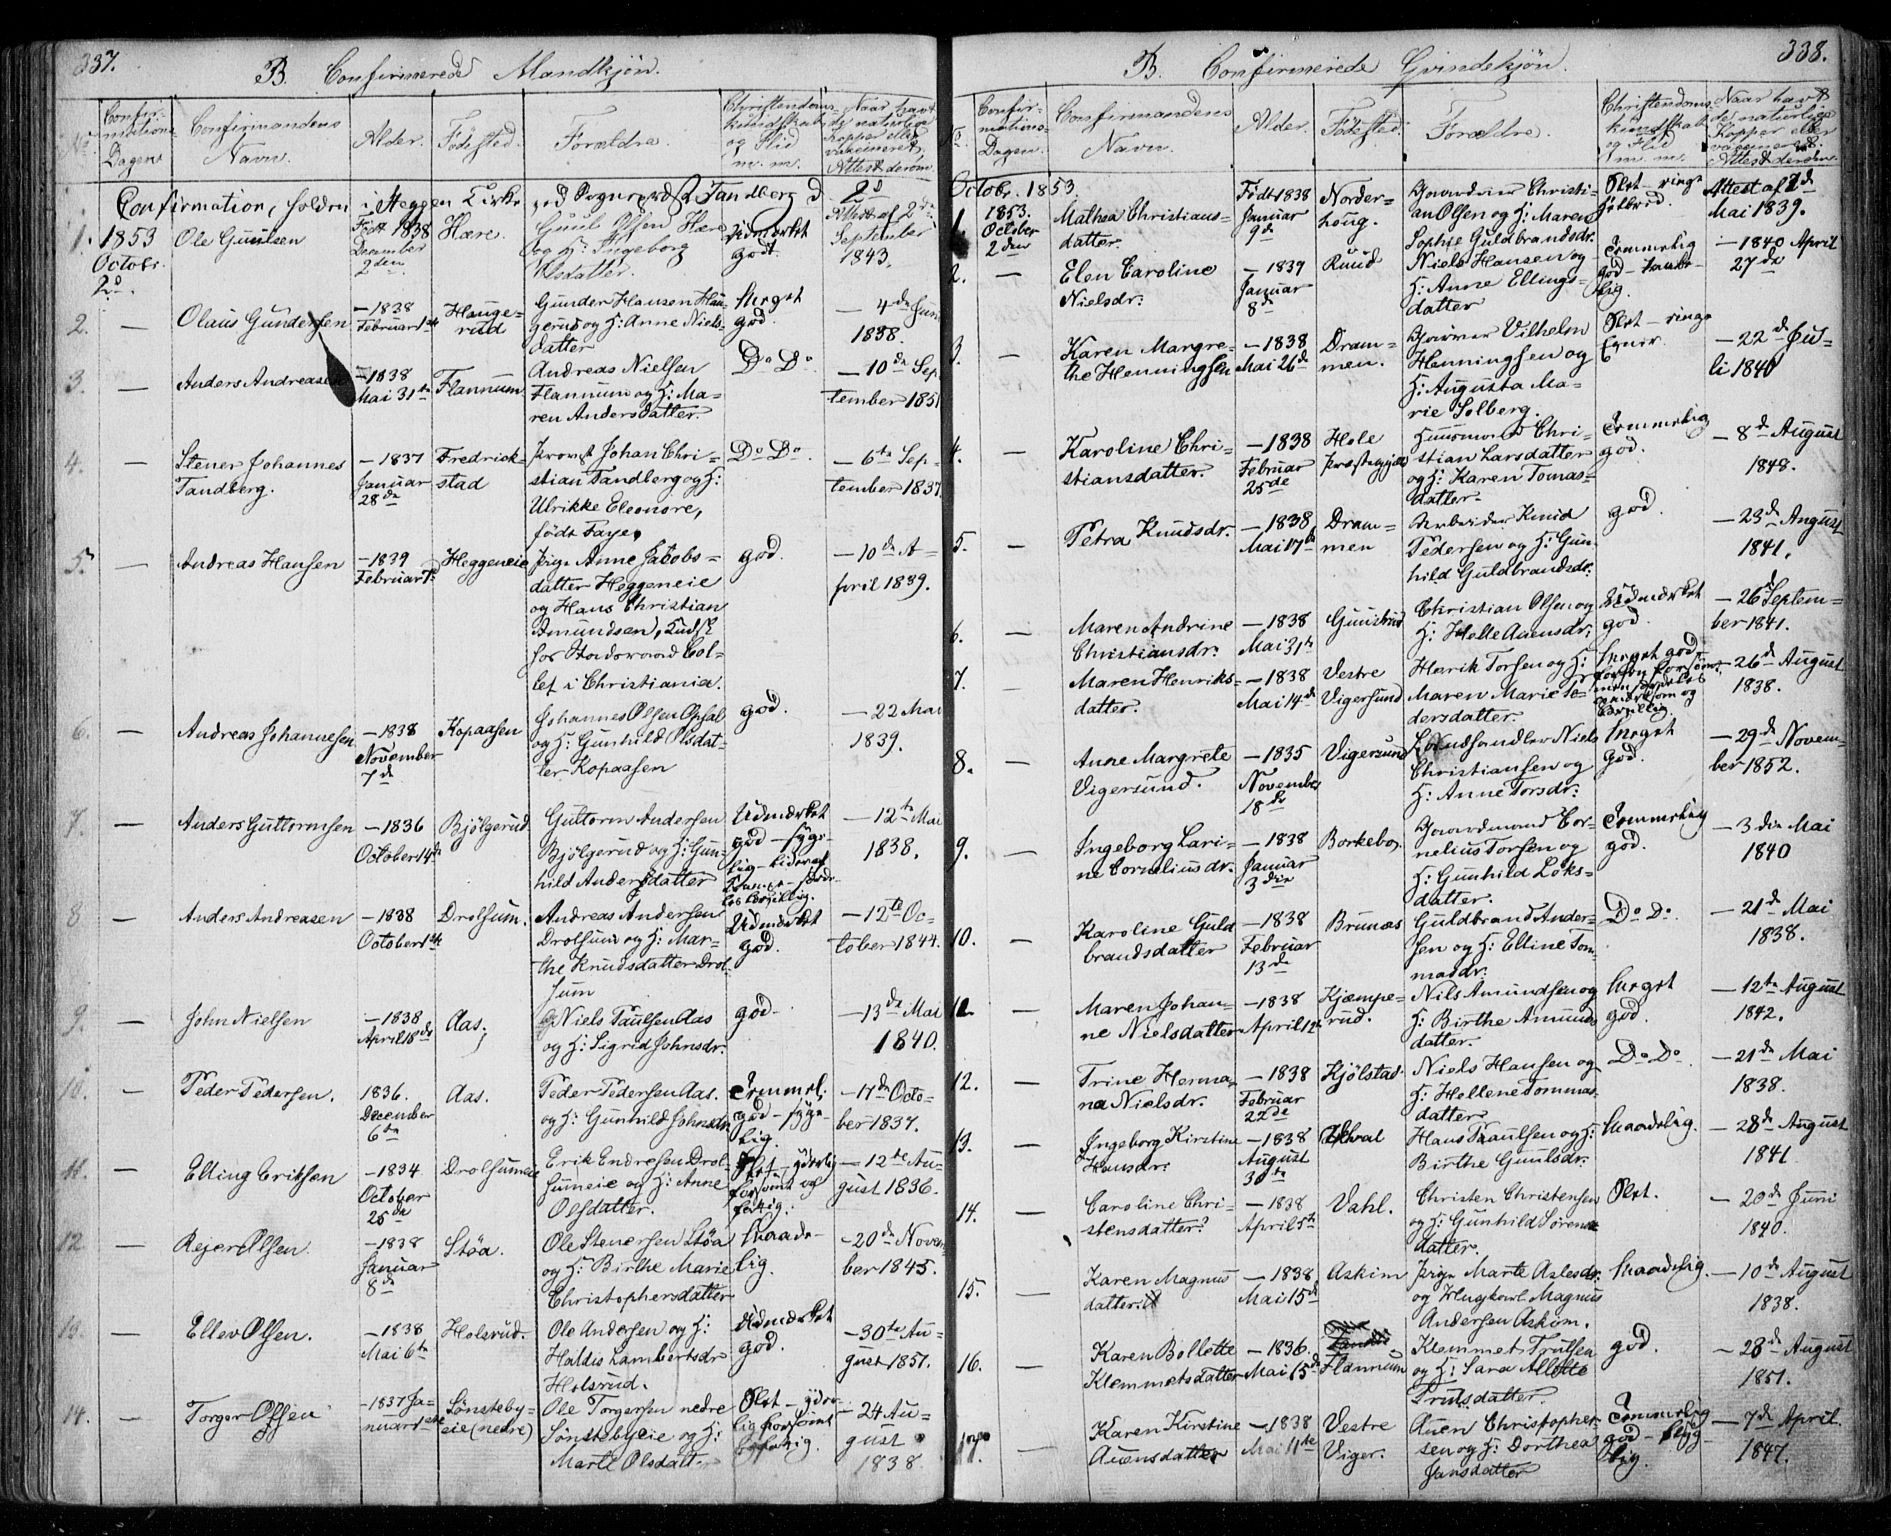 337.
B Confirmerede Mandkjøn.
No
Confirmations Dagen
Confirmandens Navn.
Alder.
Fødested.
Forældre.
Christendoms-kundskab og Flid m. m.
Naar havt de naturlige Kopper eller vaccineret. Attest derom
Confirmation, holden i Heggen Kirke ved Sogneprest Tandberg d. 2d
1.
1853
Octobr.
2d.
Ole Gunlsen
Født 1838
December
2den
Hære.
Gunl Olsen Hære
og H: Ingeborg
Olsdatter.
Udmærket
godt.
Attest af 2de
September
1843.
2. —
Olaus Gundersen
— 1838
Februar 1ste
Hauge-
rud
Gunder Hansen Hau-
gerud og H: Anne Niels-
datter
Meget
god.
— 4de Juni
1838.
3. —
Anders Andreasen
— 1838
Mai 31te
Flannum
Andreas Nielsen
Flannum og H: Ma-
ren Andersdatter.
Do Do
— 10de Sep
tember 1851
4. —
Stener Johannes
Tandberg.
— 1837
Januar
28de
Fredrick-
stad
Provst Johan Chri-
stian Tandberg og H:
Ulrikke Eleonore,
født Faye,
Do Do
— 6te Sep-
tember 1837.
5. —
Andreas Hansen
— 1839
Februar 7de
Heggeneie
Pige Anne Jacobs-
datter Heggeneie
og Hans Christian
Amundsen, Kudsk
hos Statsraad Col-
let i Christiania.
god.
— 10de A-
pril 1839.
6. —
Andreas Johannesen
— 1838
November
7de
Kopaasen
Johannes Olsen Opsal
og H: Gunhild Olsdat-
ter Kopaasen
god.
— 22 Mai
1839.
7. —
Anders Guttormsen
— 1836
October 14de
Bjølgerud.
Guttorm Andersen
Bjølgerud og H: Gun-
hild Andersdatter
Udmærket
god — syge-
lig —
— 12te Mai
1838.
8 —
Anders Andreasen
— 1838
October 1ste
Drolsum.
Andreas Andersen
Drolsum og H: Mar-
the Knudsdatter Drol-
sum
Udmærket
god.
— 12te Oc-
tober 1844.
9. —
John Nielsen
— 1838
April 18de
Aas;
Niels Paulsen Aas
og H: Sigrid Johnsdr.
god.
— 13de Mai
1840.
10. —
Peder Pedersen.
1836.
December
6te
Aas.
Peder Pedersen Aas.
og H: Gunhild Johnsdtr.
Temmel:
god — syge-
lig.
— 17de Octo-
ber 1837.
11. —
Elling Eriksen
— 1834
October
25de
Drolsumeie
Erik Endresen Drol-
sumeie og H: Anne
Olsdatter.
Slet — yderlig
forsømt og
fattig.
— 12te Au-
gust 1836.
12. —
Rejer Olsen.
— 1838
Januar
8de
Støa.
Ole Stenersen Støa
og H: Birthe Marie
Christophersdatter
Maade-
lig.
— 20de Novem
ber 1845.
13. —
Ellev Olsen.
— 1838
Mai 6te
Holsrud.
Ole Andersen og H:
Haldis Lambertsdr
Holsrud.
Udmærket
god.
— 30te Au-
gust 1851.
14. —
Torger Olsen
— 1837 Ja-
nuar 1ste
Sønsteby-
eie (nedre)
Ole Torgersen nedre
Sønstebyeie og H:
Marte Olsdatt
Slet — yder-
lig forsømt
og fattig.
— 24 Au-
gust
1838
338.
B. Confirmerede Qvindekjøn.
No.
Confir-mations-Dagen.
Confirmandens Navn.
Alder.
Fødested.
Forældre.
Christendoms-kundskab og Flid m. m.
Naar havt de naturlige Kopper eller vaccineret. Attest derom
Octobr. 1853.
1.
1853.
October
2den
Mathea Christians-
datter.
Født 1838
Januar
9de
Norder-
houg.
Gaardeier Christi-
an Olsen og H: Maren
Sophie Guldbrandsdr.
Slet — ringe
Attest af 2de
Mai 1839.
2. —
Elen Caroline
Nielsdr.
— 1839
Januar
8de
Ruud
Niels Hansen og
H: Anne Ellings-
datter
Temmelig
god —
— 1840 April
27de
3. —
Karen Margre-
the Henningsen
— 1838
Mai 26de
Dram-
men.
Vilhelm
Henningsen og
H: Augusta Ma-
rie Solberg.
Slet — ringe
Evner.
— 22de Ju-
li 1840
4. —
Karoline Chri-
stiansdatter.
— 1838
Februar
25de
Hole
Præstegjæld
Huusmand Chri-
stian Larsdatter
og H: Karen Tomas-
datter.
Temmelig
god.
— 8de August
1848.
5. —
Petra Knudsdr.
— 1838
Mai 17de
Dram-
men
Arbeider Knud
Pedersen og H: Gun-
hild Guldbrandsdr.
god.
— 23de August
1841.
6. —
Maren Andrine
Christiansdr.
— 1838
Mai 31te
Gunstrud
Christian Olsen og
H: Helle Auensdr;
Udmærket
god.
— 26de Septem-
ber 1841.
7. —
Maren Henriks-
datter.
— 1838
Mai 14de
Vestre
Vigersund
Henrik Torsen og H:
Maren Marie Pe-
dersdatter.
Meget god
— 26de August
1838.
8. —
Anne Margrete
Vigersund.
— 1835
November
18de
Vigersund
Landhandler Niels
Christiansen og
H: Anne Torsdr:
Meget
god.
— 29de Novem-
ber 1852.
9. —
Ingeborg Lari-
ne Corneliusdr.
— 1838
Januar
3die
Borkebo.
Gaardmand Cor-
nelius Torsen og
H: Gunhild Loks-
datter.
Temmelig
god.
— 3die Mai
1840
10. —
Karoline Guld
brandsdatter
— 1838
Februar
13de
Brunæs
Guldbrand Ander-
sen og H: Eline Tom-
masdr:
Do Do.
— 21de Mai
1838.
11. —
Maren Johan-
ne Nielsdatter
— 1838
April 12te
Kjæmpe-
rud.
Nils Amundsen og
H: Birthe Amunds-
datter.
Meget
god.
— 12te August
1842.
12. —
Trine Herma-
na Nielsdr.
— 1838
Februar
22de
Kjølstad
Niels Hansen og
H: Hellene Tommas-
datter
Do Do
— 21de Mai
1838.
13. —
Ingeborg Kirstine
Hansdr.
— 1838
August
30te
Hval
Hans Paulsen og H:
Birthe Gunlsdr.
Maadelig.
— 28de August
1841
14. —
Caroline Chri-
stensdatter.
— 1838
April 5te
Vahl.
Christen Christensen
og H: Gunhild Sørens-
datter.
Slet.
— 20de Juni
1840.
15. —
Karen Magnus
datter.
— 1838
Mai 15de
Askim
Pige Marte Aslesdr.
og Ungkarl Magnus
Andersen Askim.
Maadelig.
— 10de August
1838.
16. —
Karen Bollette
Klemmetsdatter
— 1836
Mai 15de
Flannum
Klemmet Trulsen
og H: Sara Allette
Trulsdatter
god.
— 28de August
1851.
17. —
Karen Kirstine
Auensdatter
— 1838
Mai 11te
Vestre
Viger.
Auen Christopher
sen og H: Dorthea
Jansdatter
Temmelig
god — flig
tig.
— 7de April
1847.